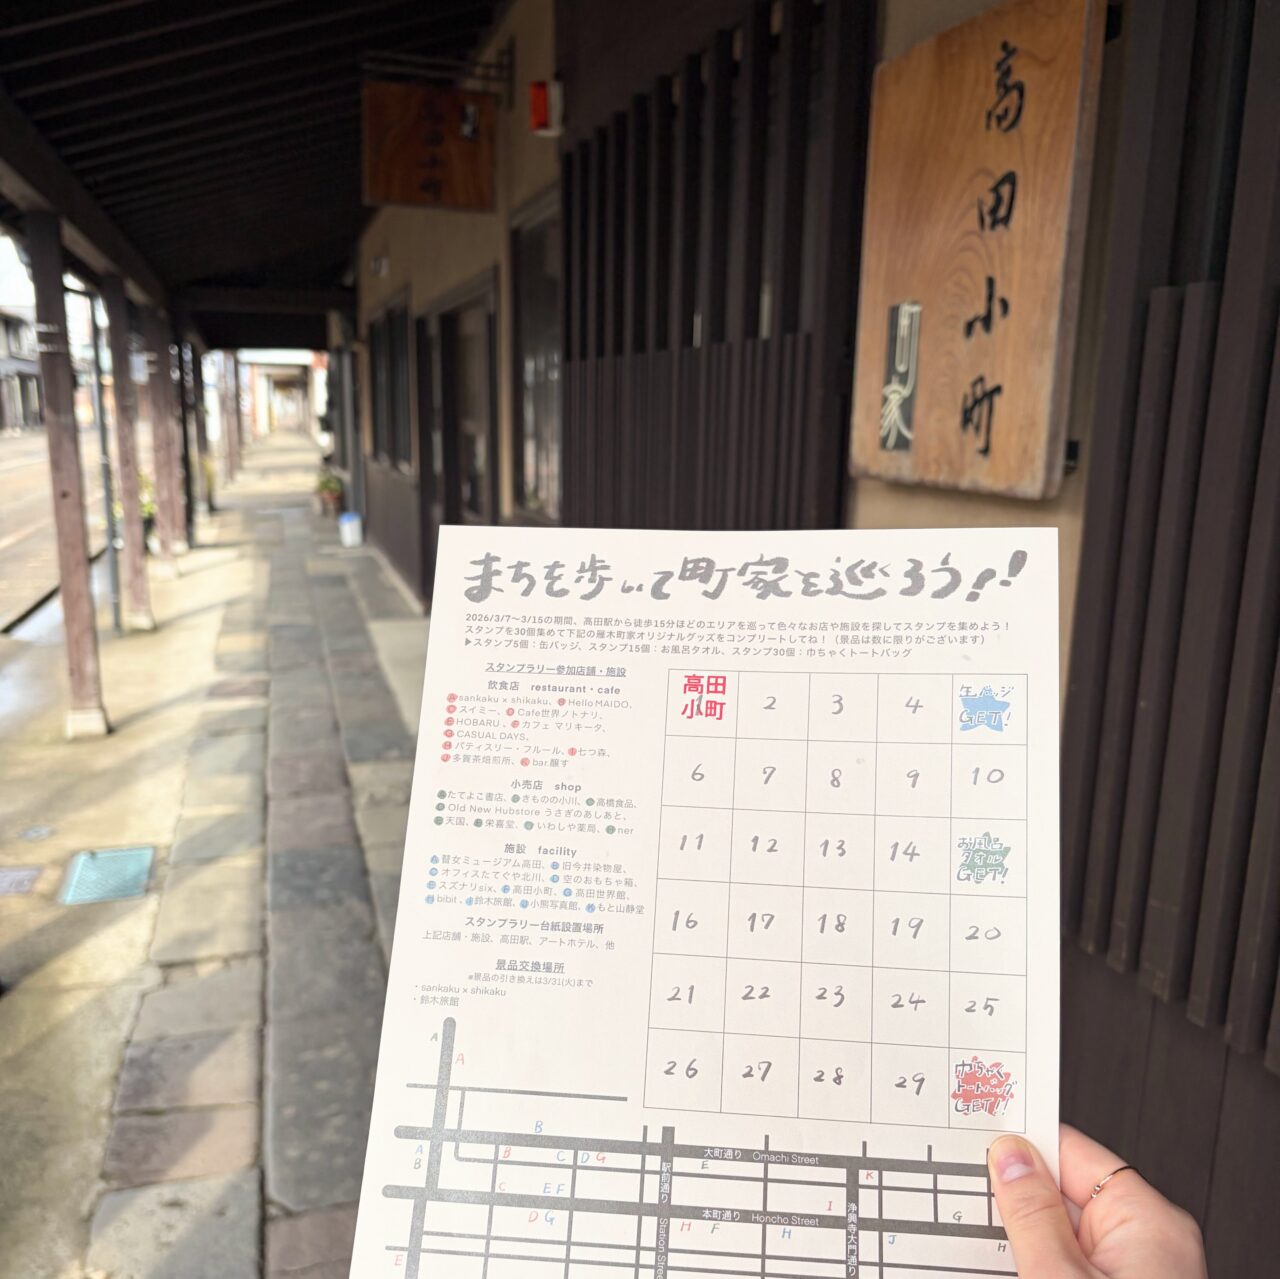 高田小町
高田小町
町家
まちを歩いて町家を巡ろう!!
2026/3/7〜3/15の期間、高田駅から徒歩15分ほどのエリアを巡って色々なお店や施設を探してスタンプを集めよう！
スタンプを30個集めて下記の雁木町家オリジナルグッズをコンプリートしてね！（景品は数に限りがございます）
▶スタンプ5個：缶バッジ、スタンプ15個：お風呂タオル、スタンプ30個：巾ちゃくトートバッグ
スタンプラリー参加店舗・施設
飲食店 restaurant・cafe
A sansaku×shikaku、B Hello MAIDO、
C スイミー、D Cafe世界ノトナリ、
E HOBARU、F カフェ マリキータ、
G CASUAL DAYS、
H パティスリー・フルール、I 七つ森、
J 多賀茶焙煎所、K bar.醸す
小売店 shop
A たてよこ書店、B きものの小川、C 高橋食品、
D Old New Hubstore うさぎのあしあと、
E 天国、F 栄喜堂、G いわしや薬局、H ner
施設 facility
A 瞽女ミュージアム高田、B 旧今井染物屋、
C オフィスたてぐや北川、D 空のおもちゃ箱、
E スズナリsix、F 高田小町、G 高田世界館、
H bibit、I 鈴木旅館、J 小熊写真館、K もと山静堂
スタンプラリー台紙設置場所
上記店舗・施設、高田駅、アートホテル、他
景品交換場所
※景品の引き換えは3/31(火)まで
・sankaku×shikaku
・鈴木旅館
高田小町 1 2 3 4 缶バッジ GET!
6 7 8 9 10
11 12 13 14 お風呂タオル GET!
16 17 18 19 20
21 22 23 24 25
26 27 28 29 巾ちゃくトートバッグ GET!!
A
A
B
A B C D G 大町通り Omachi Street
B E K
駅前通り Station Stree
C E F I 浄興寺大門通り
D G 本町通り Honcho Street G
H F H J H
E